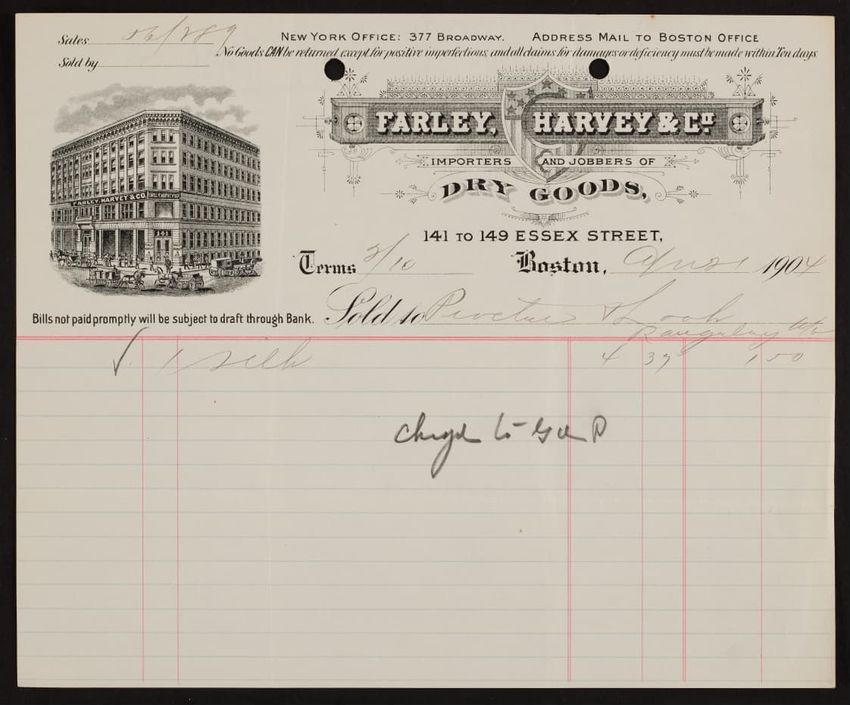 Sales 56/289
NEW YORK OFFICE: 377 BROADWAY. ADDRESS MAIL TO BOSTON OFFICE
No Goods CAN be returned except for positive imperfections, and all claims for damages or deficiency must be made within Ten days.
Sold by
FARLEY, HARVEY & CO.
FARLEY, HARVEY & Co.
IMPORTERS AND JOBBERS OF
DRY GOODS,
141 TO 149 ESSEX STREET,
Terms 2/10 Boston, Apr 21 1904
Bills not paid promptly will be subject to draft through Bank. Sold to & Look
1 Silk 4 37 1 50
to